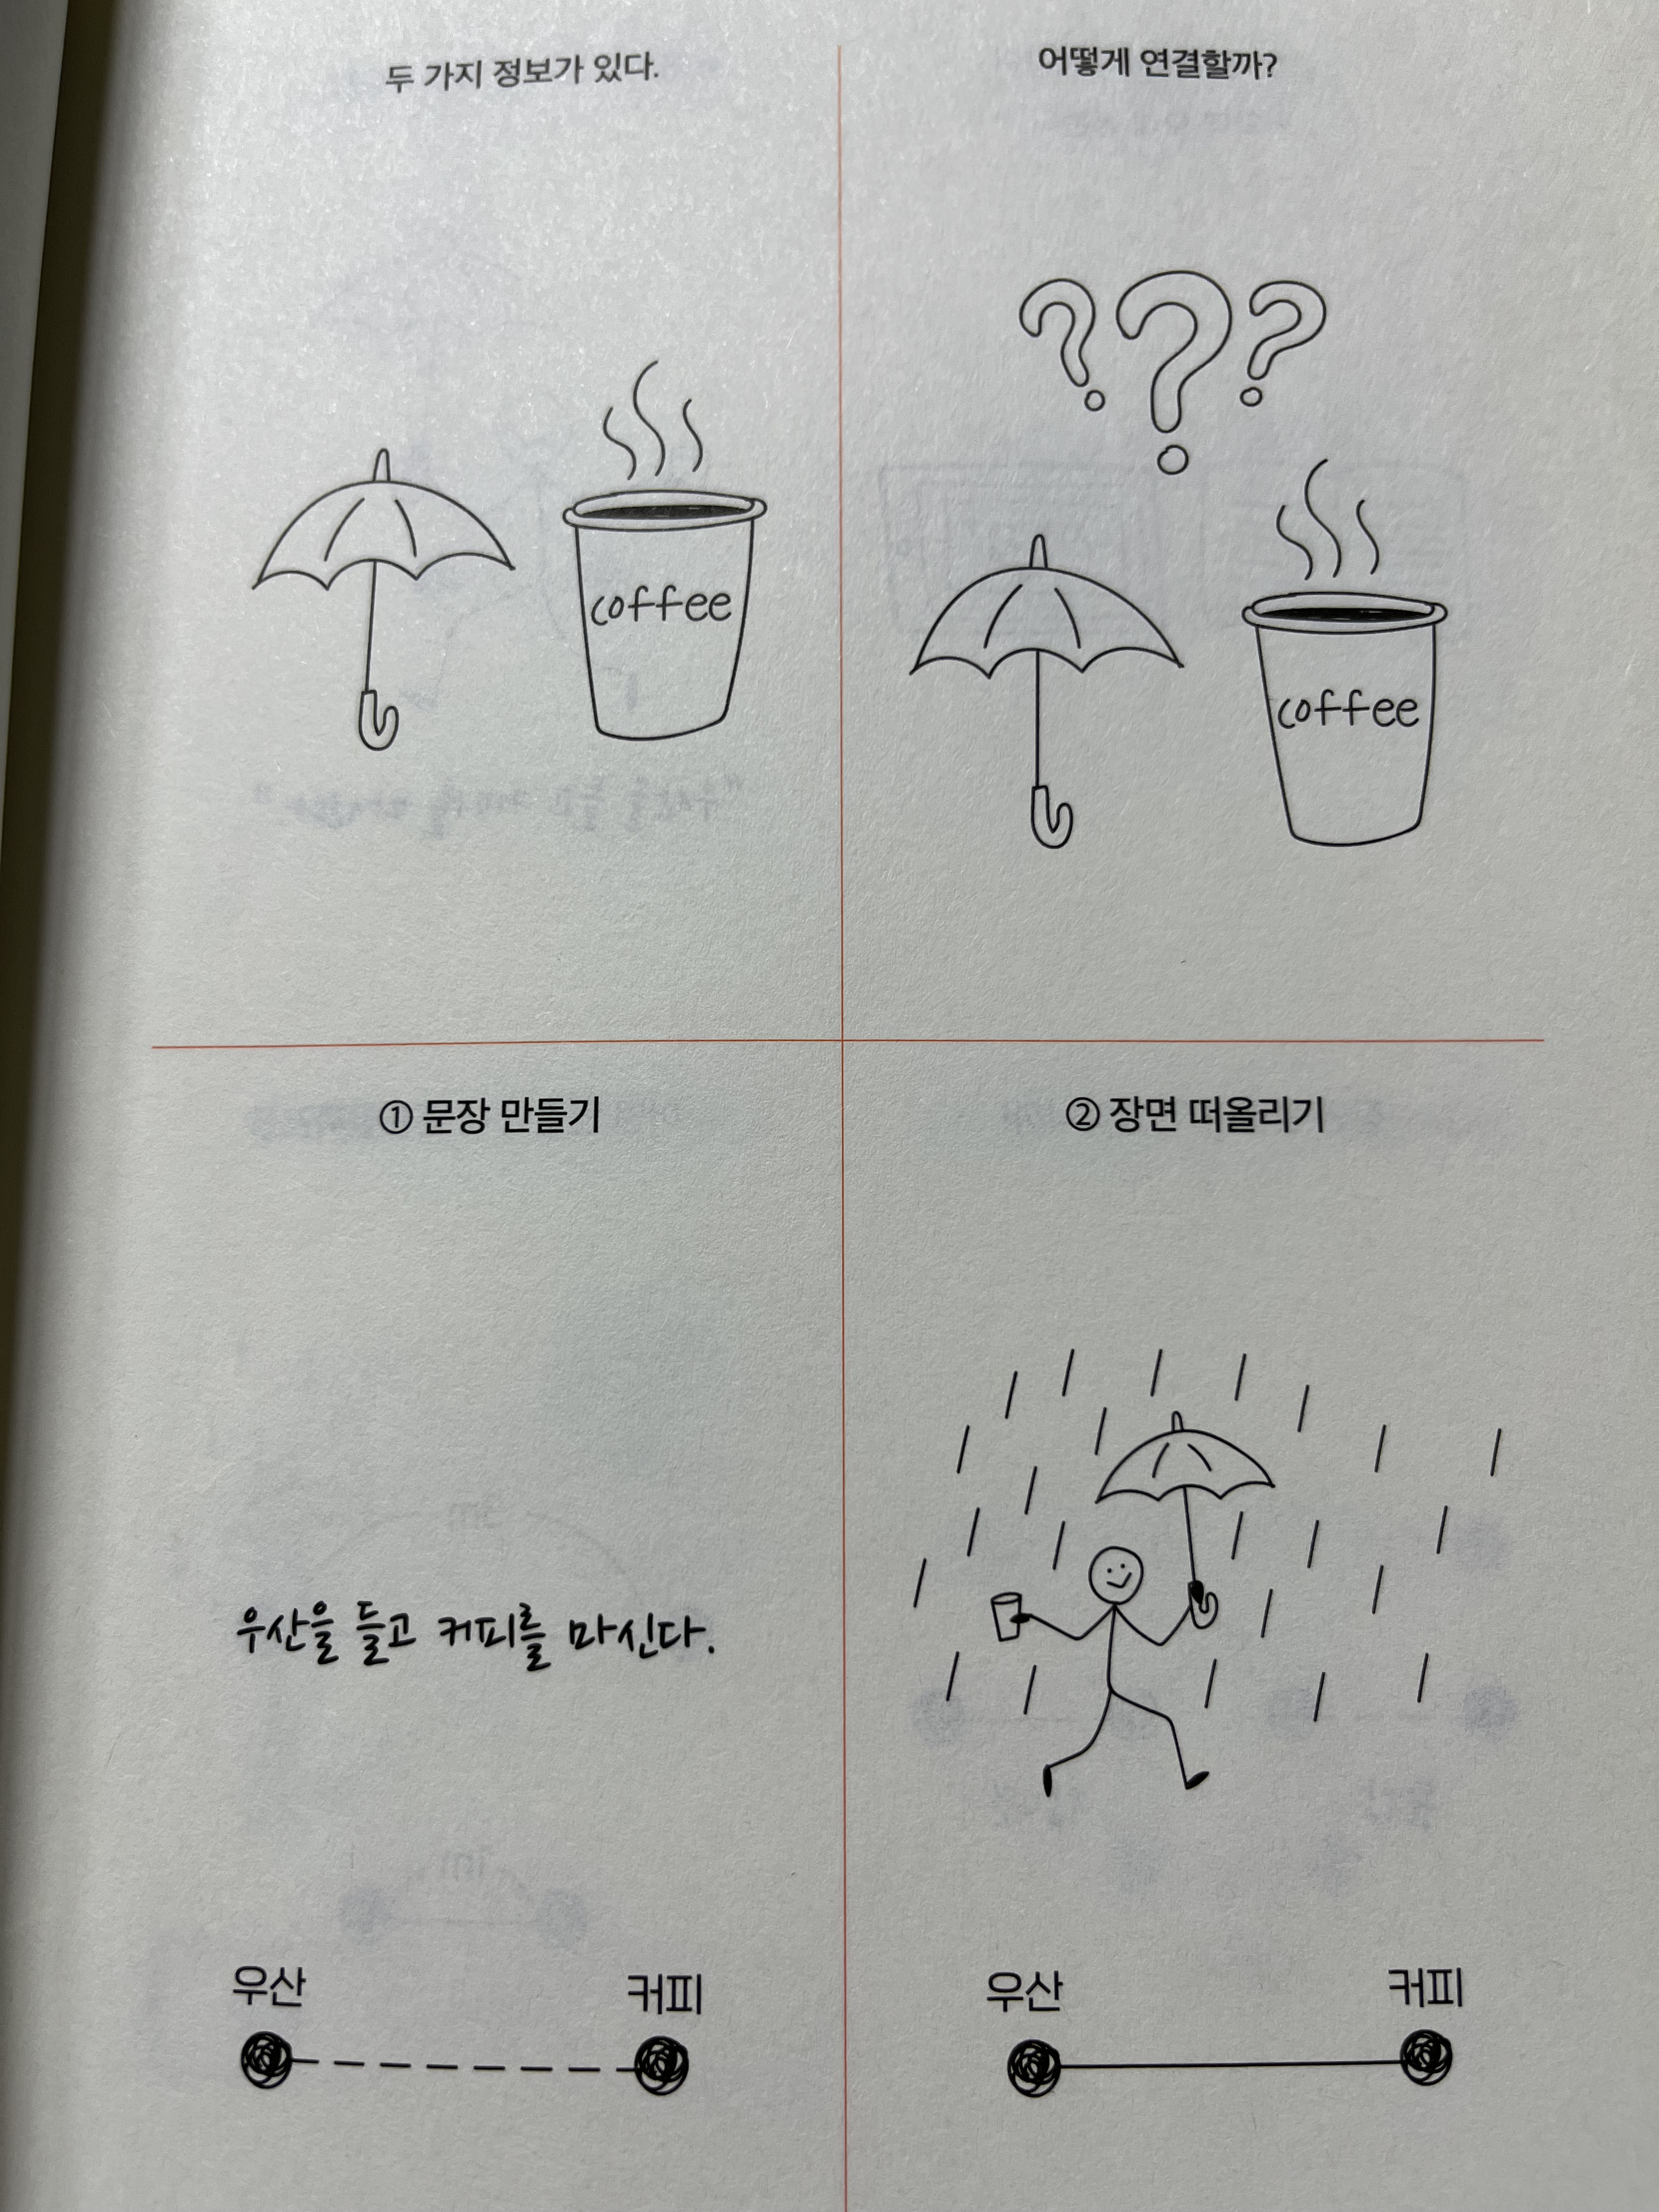 두 가지 정보가 있다.
coffee
어떻게 연결할까?
???
coffee
① 문장 만들기
우산을 들고 커피를 마신다.
우산 커피
② 장면 떠올리기
우산 커피